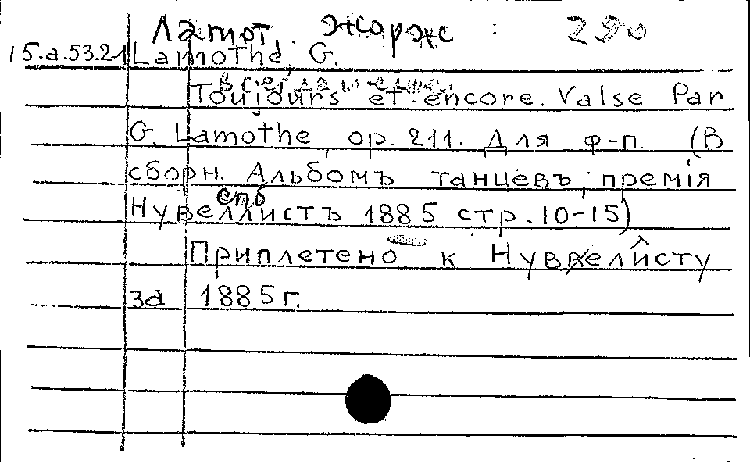 Ламот, Жорж : 290
15.a.53.21 Lamothe, G.
Всегда и еще.
Toujours et encore. Valse Par
G. Lamothe, op. 211. Для ф-п. (В
сборн. Альбомъ танцевъ, премія
спб
Нувеллистъ 1885 стр. 10-15)
Приплетено к Нувелисту
за 1885 г.